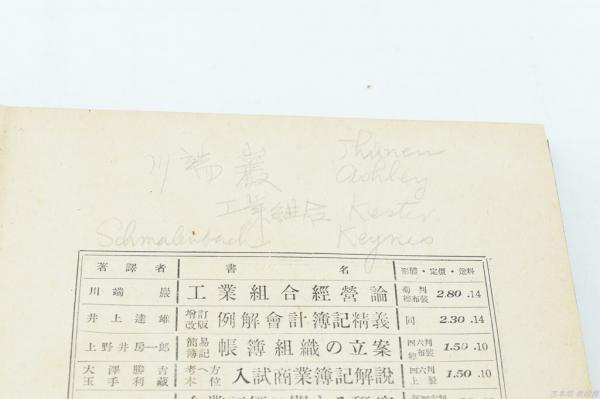 川端巖 Thünen
Ashley
工業組合 Kester
Schmalenbach Keynes
著譯者 書名 形態・定價・送料
川端巖 工業組合經營論 菊判總布裝 2.80 .14
井上達雄 增訂改版 例解會計簿記精義 同 2.30 .14
上野井房一郎 簡易簿記 帳簿組織の立案 四六判總布 1.50 .10
大澤勝吉 玉手利藏 考へ方本位 入試商業簿記解說 四六判上製 1.50 .10